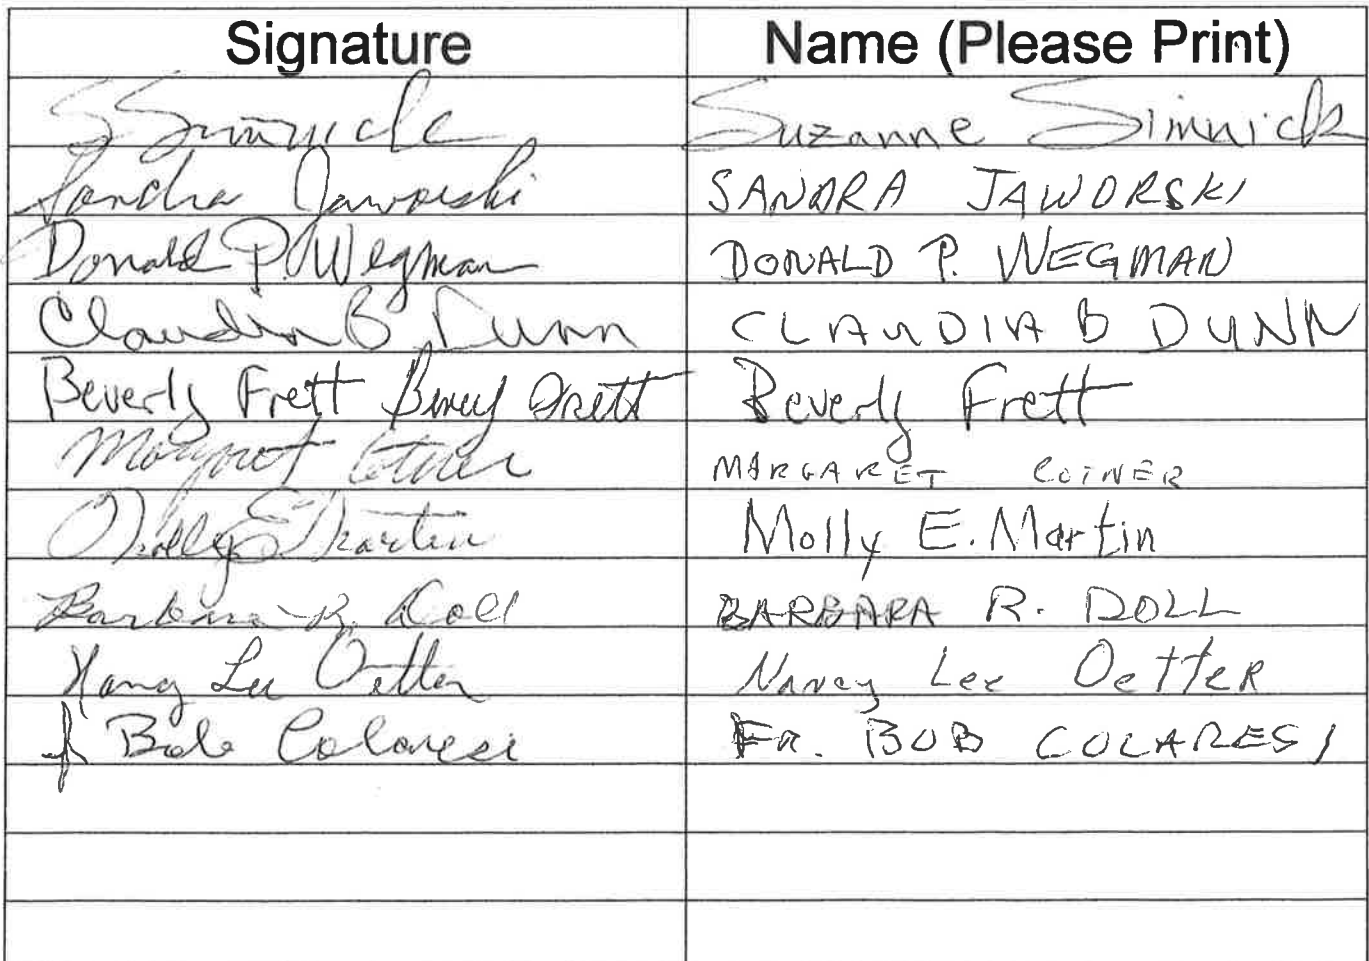 Signature Name (Please Print)
S Simnick Suzanne Simnick
Sandra Jaworski SANDRA JAWORSKI
Donald P. Wegman DONALD P. WEGMAN
Claudia B Dunn CLAUDIA B DUNN
Beverly Frett Beverly Frett Beverly Frett
Margaret MARGARET
Molly E Martin Molly E. Martin
Barbara R. Doll BARBARA R. DOLL
Nancy Lee Oetter Nancy Lee Oetter
Bob Colaresi FR. BOB COLARESI